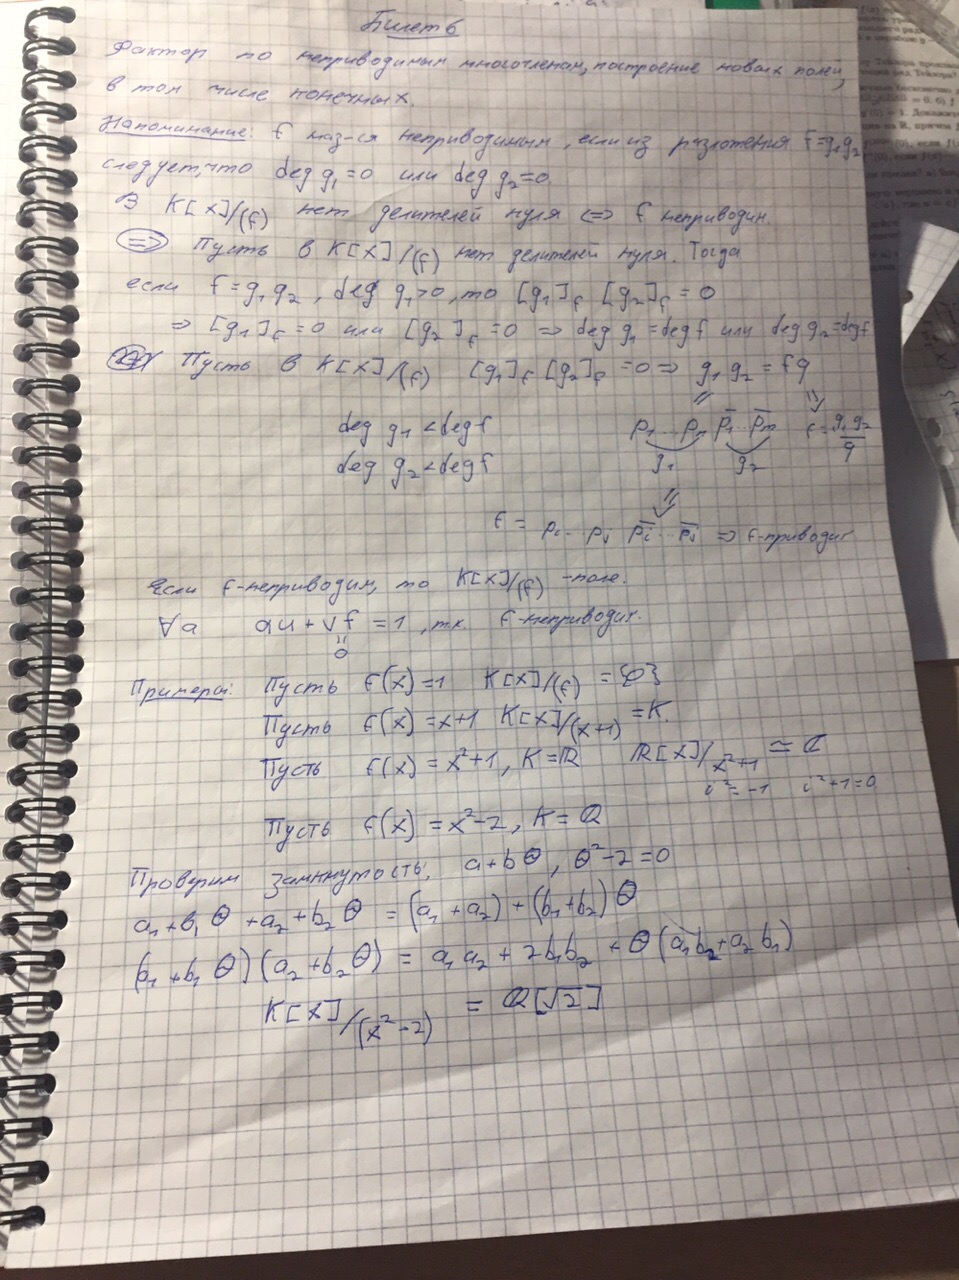 Билет 6
Фактор по неприводимым многочленам, построение новых полей,
в том числе конечных.
Напоминание: f наз-ся неприводимым, если из разложения f=g₁g₂
следует, что deg g₁=0 или deg g₂=0.
В K[X]/(f) нет делителей нуля ⇔ f неприводим.
⇒ Пусть в K[X]/(f) нет делителей нуля. Тогда
если f=g₁g₂, deg g₁>0, то [g₁]_f [g₂]_f = 0
⇒ [g₁]_f = 0 или [g₂]_f = 0 ⇒ deg g₁ = deg f или deg g₂ = deg f
Пусть в K[X]/(f) [g₁]_f [g₂]_f = 0 ⇒ g₁ g₂ = fq
deg g₁ < deg f p₁...pₙ p̄₁...p̄ₘ f = g₁g₂/q
deg g₂ < deg f g₁ g₂
f = pᵢ...pⱼ p̄ᵢ...p̄ⱼ ⇒ f-приводим
Если f-неприводим, то K[X]/(f) - поле.
∀a au + vf = 1, т.к. f-неприводим.
0
Примеры: Пусть f(x)=1 K[X]/(f) = {0}
Пусть f(x)=x+1 K[X]/(x+1) = K.
Пусть f(x) = x²+1, K=ℝ ℝ[X]/x²+1 ≃ ℂ
i²=-1 i²+1=0
Пусть f(x) = x²-2, K=ℚ
Проверим замкнутость: a+bΘ, Θ²-2=0
a₁+b₁Θ + a₂+b₂Θ = (a₁+a₂)+(b₁+b₂)Θ
(a₁+b₁Θ)(a₂+b₂Θ) = a₁a₂ + 2b₁b₂ + Θ(a₁b₂+a₂b₁)
K[X]/(x²-2) = ℚ[√2]